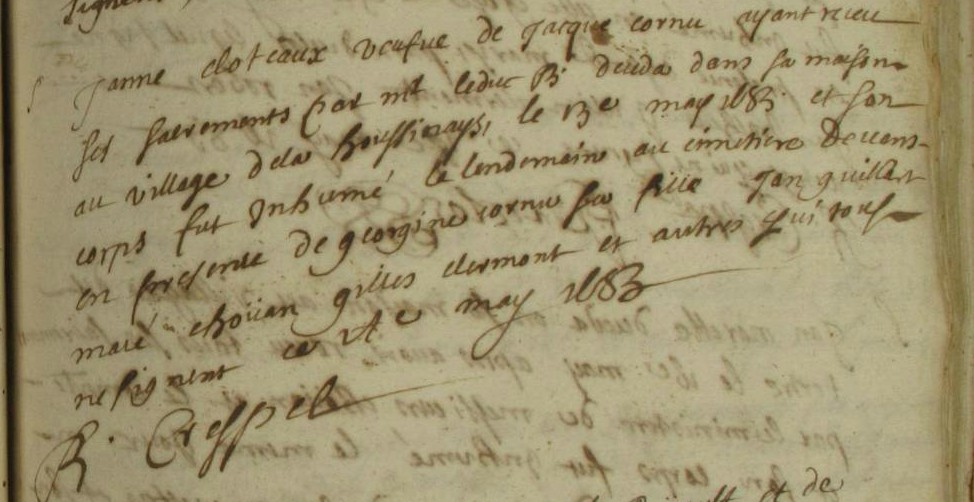 signent
Janne cloteaux veufue de Jacque cornu ayant receu
ses sacrements par mt leduc Pt deceda dans sa maison
au village dela houssinays, le 13e may 1683 et son
corps fut Inhumé le lendemain au cimetiere Deuans
en presence de georgine cornu sa fille Jan guillart
maié choüan gilles clermont et autres qui tous
ne signent ce 14e may 1683
R. Crespel
et de